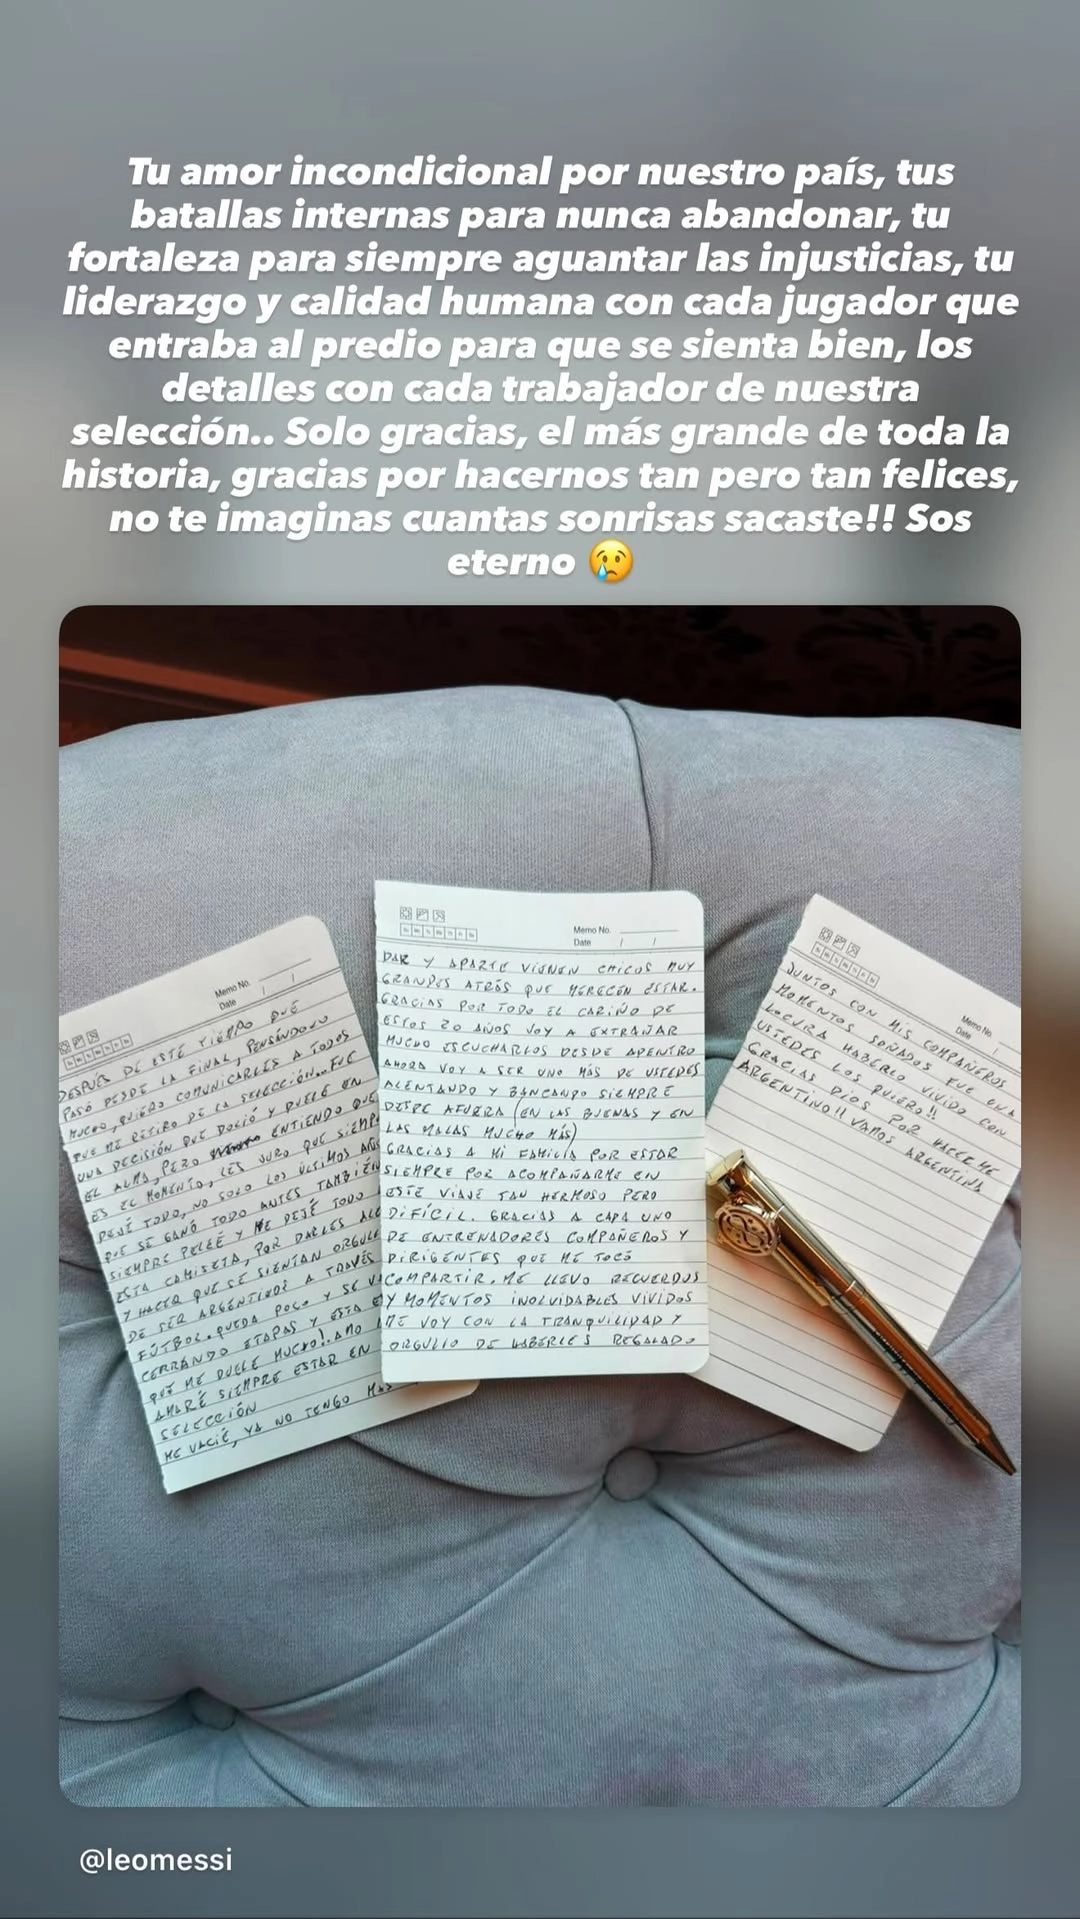 Tu amor incondicional por nuestro país, tus
batallas internas para nunca abandonar, tu
fortaleza para siempre aguantar las injusticias, tu
liderazgo y calidad humana con cada jugador que
entraba al predio para que se sienta bien, los
detalles con cada trabajador de nuestra
selección.. Solo gracias, el más grande de toda la
historia, gracias por hacernos tan pero tan felices,
no te imaginas cuantas sonrisas sacaste!! Sos
eterno 😢
Memo No.
Date / /
DESPUÉS DE ESTE TIEMPO QUE
PASÓ DESDE LA FINAL, PENSÁNDOLO
MUCHO, QUIERO COMUNICARLES A TODOS
QUE ME RETIRO DE LA SELECCIÓN.. FUE
UNA DECISIÓN QUE DOLIÓ Y DUELE EN
EL ALMA, PERO ENTIENDO QUE
ES EL MOMENTO, LES JURO QUE SIEMP
DEJÉ TODO, NO SOLO LOS ÚLTIMOS AÑ
QUE SE GANÓ TODO ANTES TAMBIÉN
SIEMPRE PELEÉ Y ME DEJÉ TODO
ESTA CAMISETA, POR DARLES ALE
Y HACER QUE SE SIENTAN ORGULL
DE SER ARGENTINOS A TRAVÉS
FÚTBOL. QUEDA POCO Y SE V
CERRANDO ETAPAS Y ESTA E
QUE ME DUELE MUCHO!. AMO
AMARÉ SIEMPRE ESTAR EN
SELECCIÓN
ME VACIÉ, YA NO TENGO MÁS
Memo No.
Date / /
DAR Y APARTE VIENEN CHICOS MUY
GRANDES ATRÁS QUE MERECEN ESTAR.
GRACIAS POR TODO EL CARIÑO DE
ESTOS 20 AÑOS VOY A EXTRAÑAR
MUCHO ESCUCHARLOS DESDE ADENTRO
AHORA VOY A SER UNO MÁS DE USTEDES
ALENTANDO Y BANCANDO SIEMPRE
DESDE AFUERA (EN LAS BUENAS Y EN
LAS MALAS MUCHO MÁS)
GRACIAS A MI FAMILIA POR ESTAR
SIEMPRE POR ACOMPAÑARME EN
ESTE VIAJE TAN HERMOSO PERO
DIFÍCIL. GRACIAS A CADA UNO
DE ENTRENADORES COMPAÑEROS Y
DIRIGENTES QUE ME TOCÓ
COMPARTIR. ME LLEVO RECUERDOS
Y MOMENTOS INOLVIDABLES VIVIDOS
ME VOY CON LA TRANQUILIDAD Y
ORGULLO DE HABERLES REGALADO
Memo No.
Date /
JUNTOS CON MIS COMPAÑEROS
MOMENTOS SOÑADOS FUE UNA
LOCURA HABERLO VIVIDO CON
USTEDES LOS QUIERO!!
GRACIAS DIOS POR HACERME
ARGENTINO!! VAMOS ARGENTINA
@leomessi